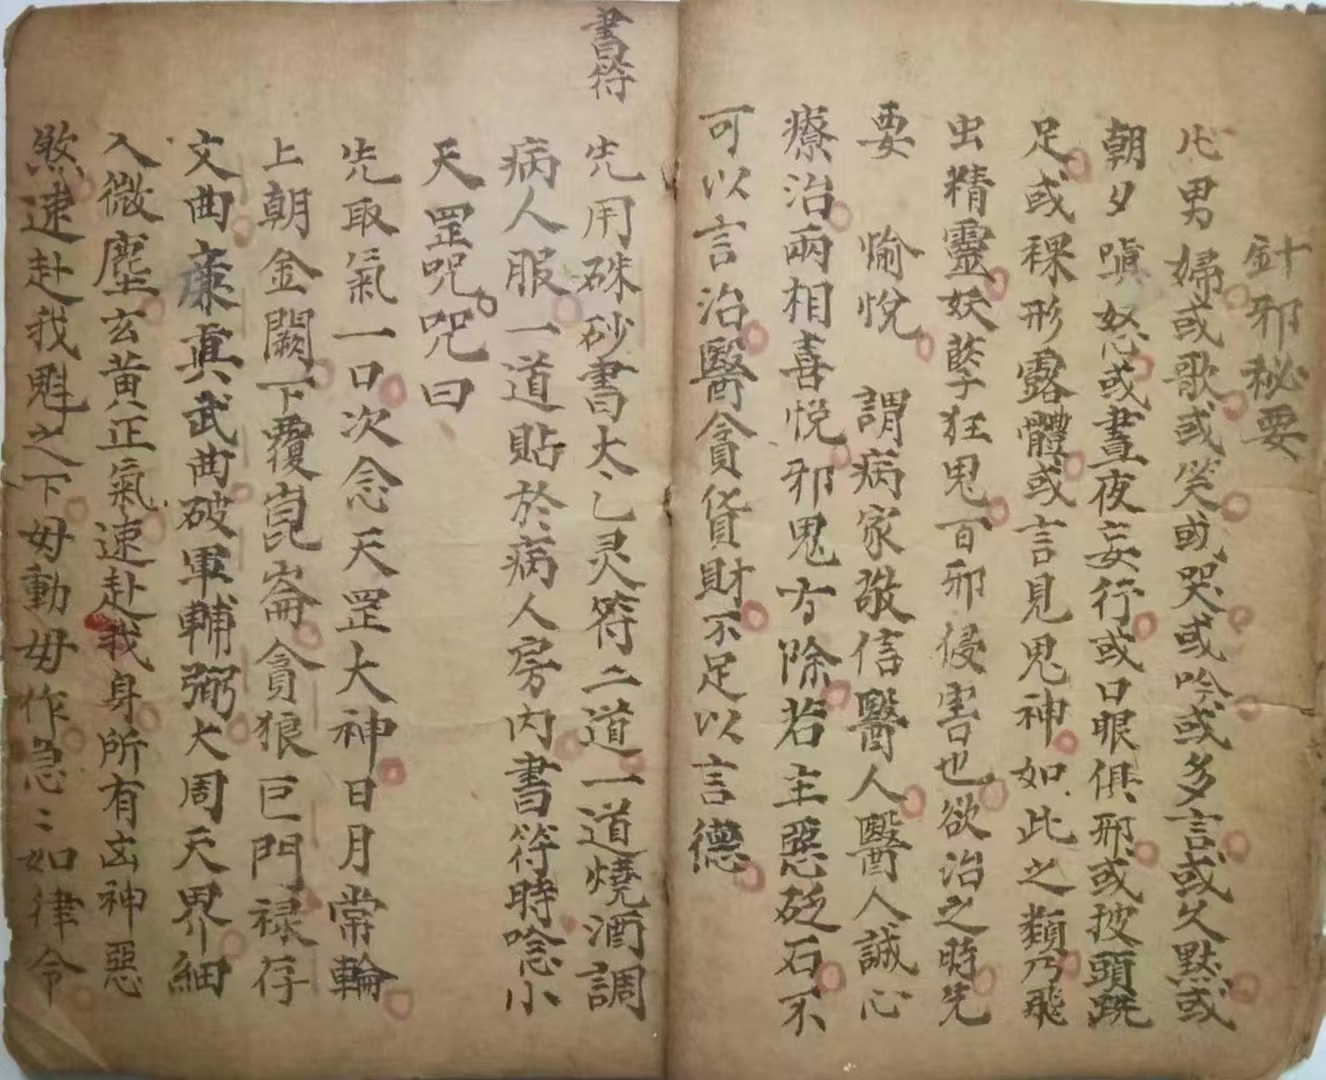 針邪秘要
凡男婦或歌或笑或哭或吟或多言或久默或
朝夕嗔怒或晝夜妄行或口眼俱邪或披頭跣
足或裸形露體或言見鬼神如此之類乃飛
虫精靈妖孽狂鬼百邪侵害也欲治之時先
要　愉悅　謂病家敬信醫人醫人誠心
療治兩相喜悅邪鬼方除若主惡砭石不
可以言治醫貪貨財不足以言德
書符
先用硃砂書太乙灵符二道一道燒酒調
病人服一道貼於病人房内書符時唸小
天罡咒咒曰
先取氣一口次念天罡大神日月常輪
上朝金闕下覆崑崙貪狼巨門禄存
文曲廉真武曲破軍輔弼大周天界細
入微塵玄黃正氣速赴我身所有凶神惡
煞速赴我魁之下毋動毋作急〻如律令